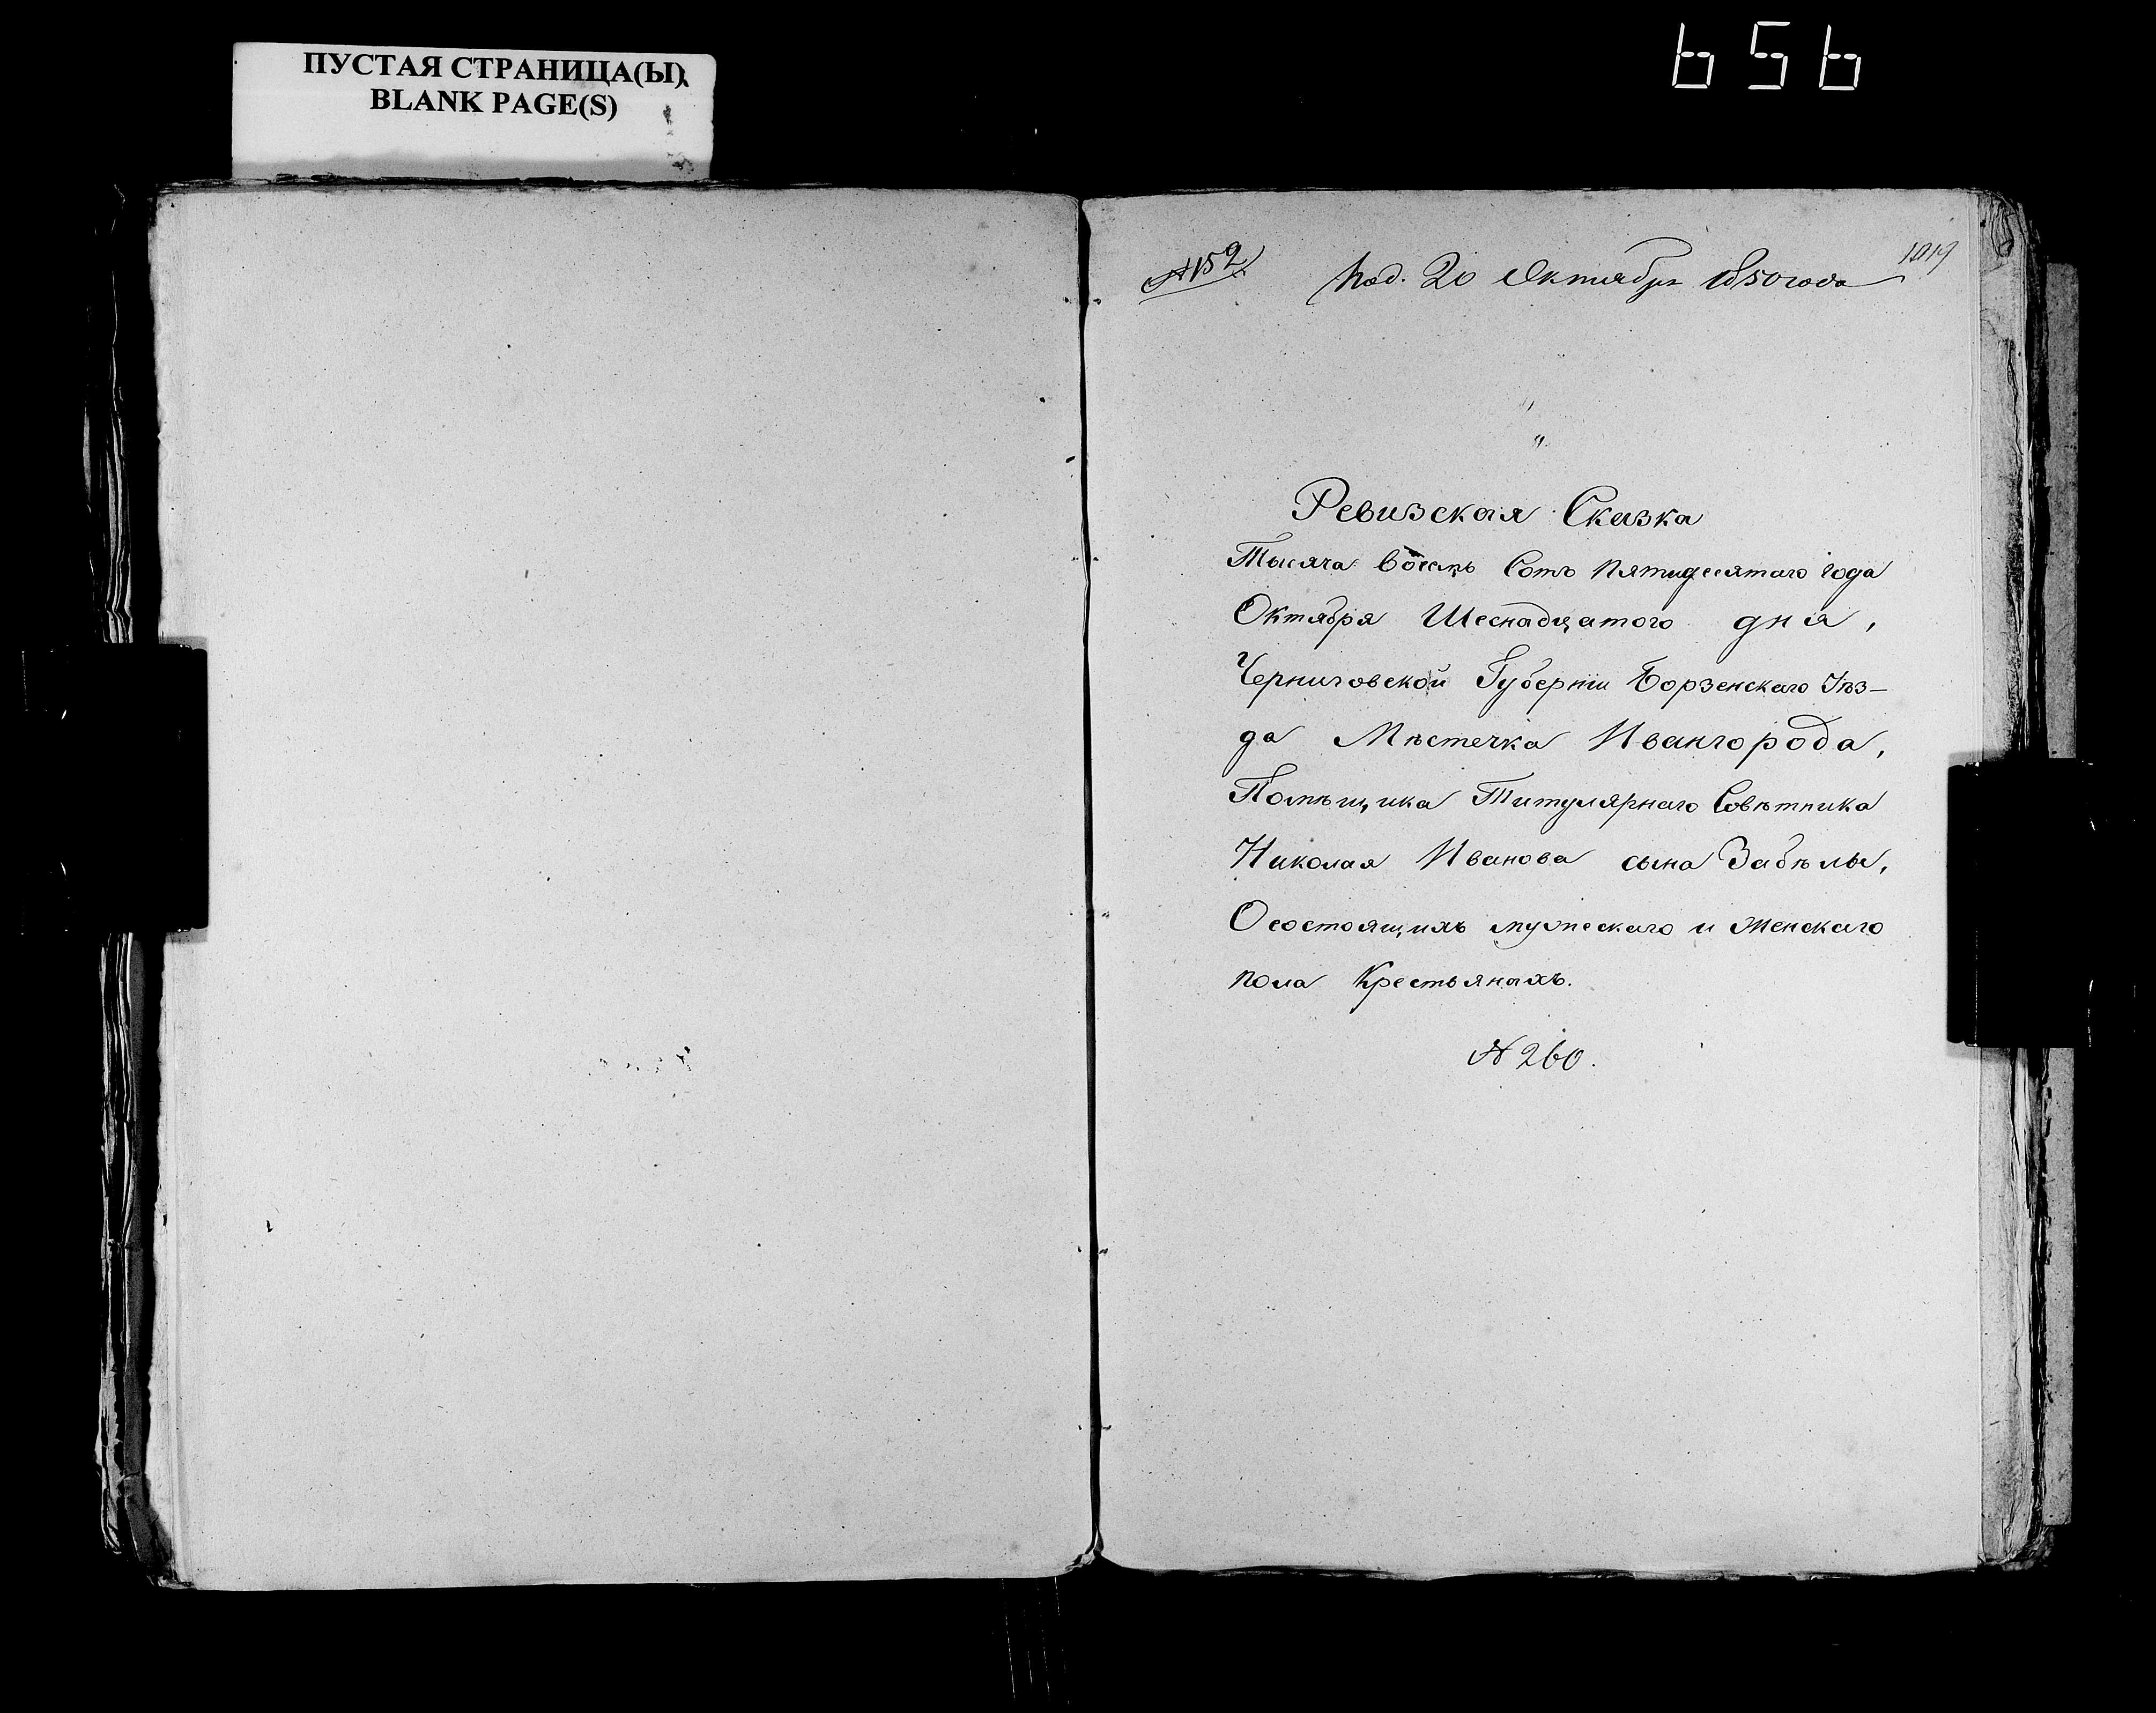 ПУСТАЯ СТРАНИЦА(Ы)
BLANK PAGE(S)
656
№ 152
Под. 20 Октября 1850 года
Ревизская Сказка
Тысяча восемь Сотъ пятидесятаго года
Октября Шеснадцатого дня,
Черниговской Губерніи Борзенскаго Уѣз-
да Мѣстечка Ивангорода,
Помѣщика Титулярнаго Совѣтника
Николая Иванова сына Забѣлы,
О состоящихъ мужескаго и женскаго
пола Крестьянахъ.
№ 260.